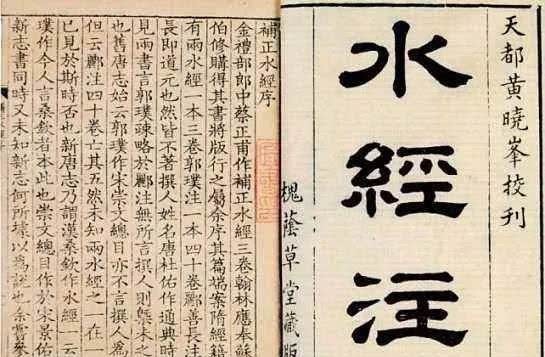 天都黄曉峯挍刊
水經注
槐蔭草堂藏版
補正水經序
金禮部郎中蔡正甫作補正水經三卷翰林應奉蘇
伯修購得其書將版行之屬余序其篇端案隋經籍
有兩水經一本三卷郭璞注一本四十卷酈善長注
長即道元也然皆不著撰人姓名唐杜佑作通典時
見兩書言郭璞疎略於酈注無所言撰人則槩未之
也舊唐志始云郭璞作宋崇文總目亦不言撰人為
但云酈注四十卷亡其五然未知兩水經之一在一
已見於斯時否也新唐志乃謂漢桑欽作水經一云
璞作今人言桑欽者本此也崇文總目作於宋景佑
新志書同時又未知新志何所據以為說也余嘗參